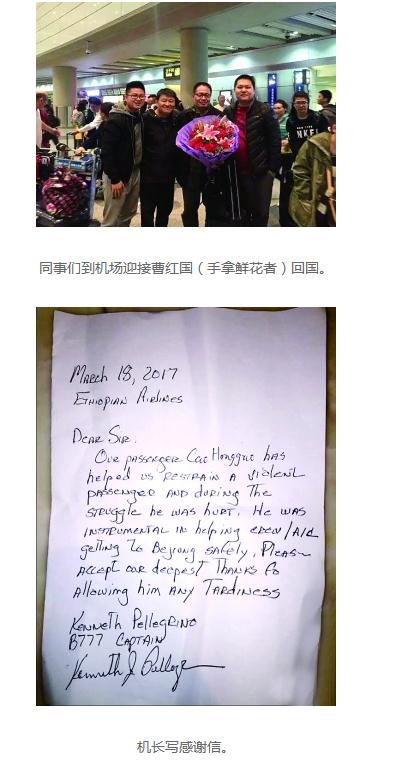 同事们到机场迎接曹红国（手拿鲜花者）回国。
March 18, 2017
Ethiopian Airlines
Dear Sir:
Our passenger Cao Hongguo has
helped us restrain a violent
passenger and during the
struggle he was hurt. He was
instrumental in helping crew/Aid
getting to Beijing safely. Please
accept our deepest thanks fo
allowing him any Tardiness
Kenneth Pellegrino
B777 Captain
机长写感谢信。